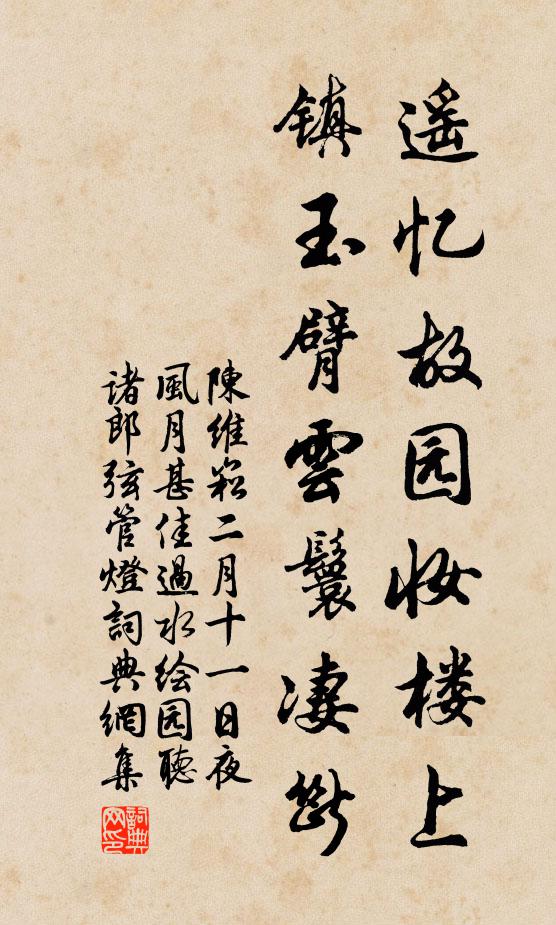 遥忆故园妆楼上
镇玉臂雲鬟凄断
陳維崧二月十一日夜
風月甚佳過水绘园聽
诸郎弦管燈詞典網集
詞典网印